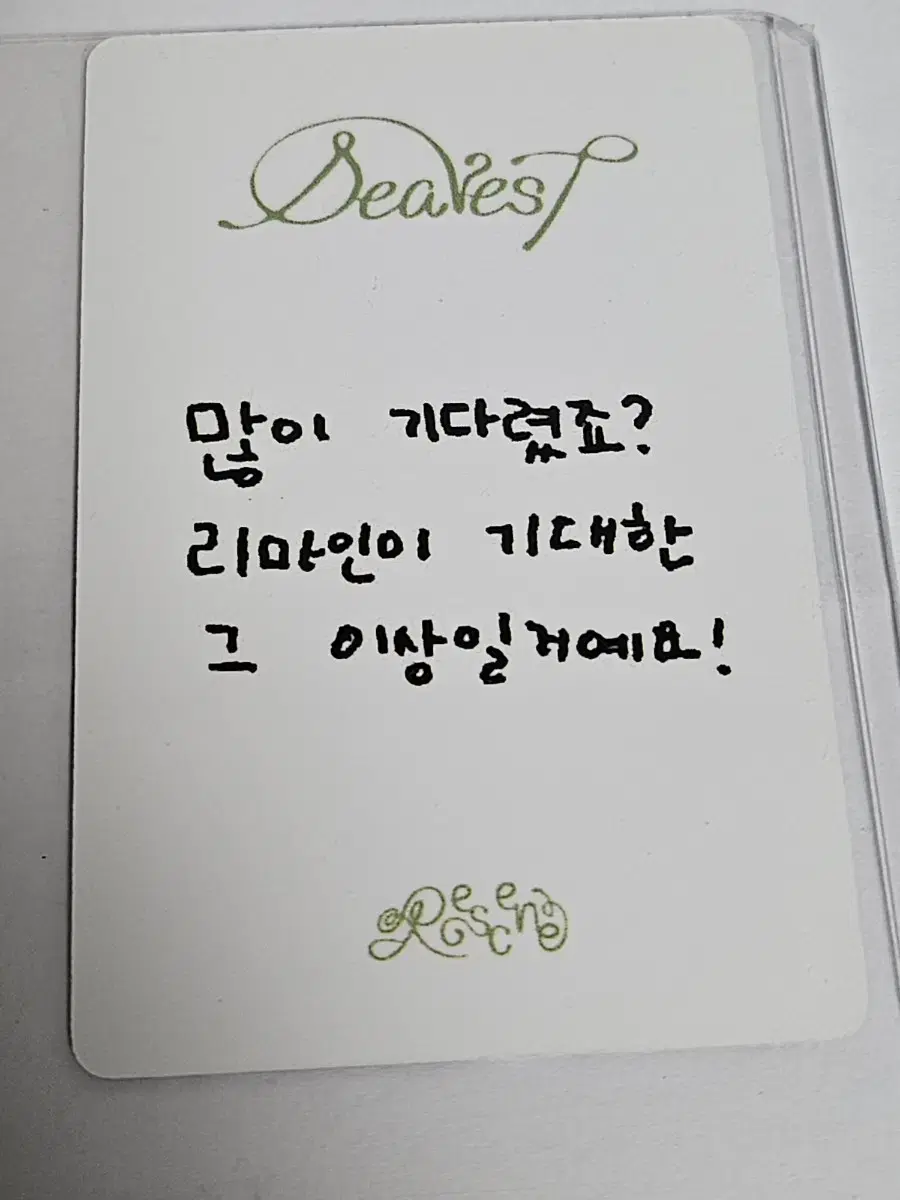 Dearest
많이 기다렸죠?
리마인이 기대한
그 이상일거예요!
Rescene